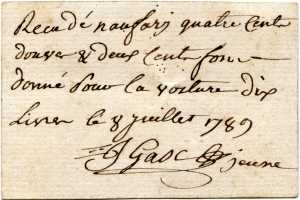 Recu dé naufary quatre Cent
douver & deux Cent fonr
donné pour la voiture dix
Livres le 8 juillet 1789
J Gasc jeune